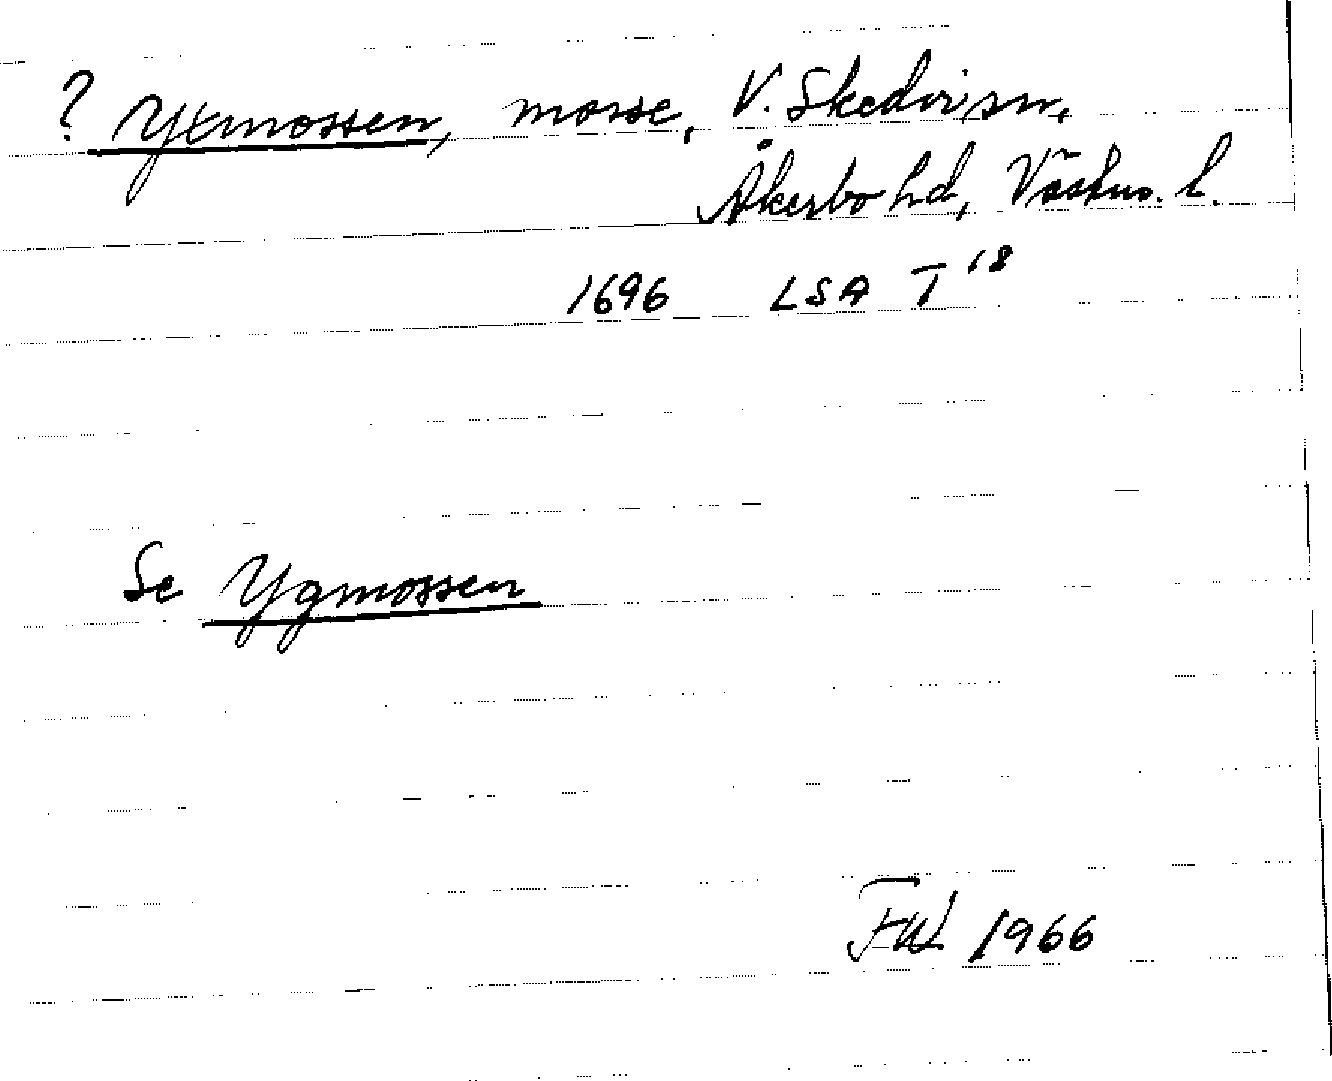 ? Yxmossen, mosse, V. Skedvi sn,
Åkerbo hd, Västm. l.
1696 LSA T 18
Se Ygmossen
1966